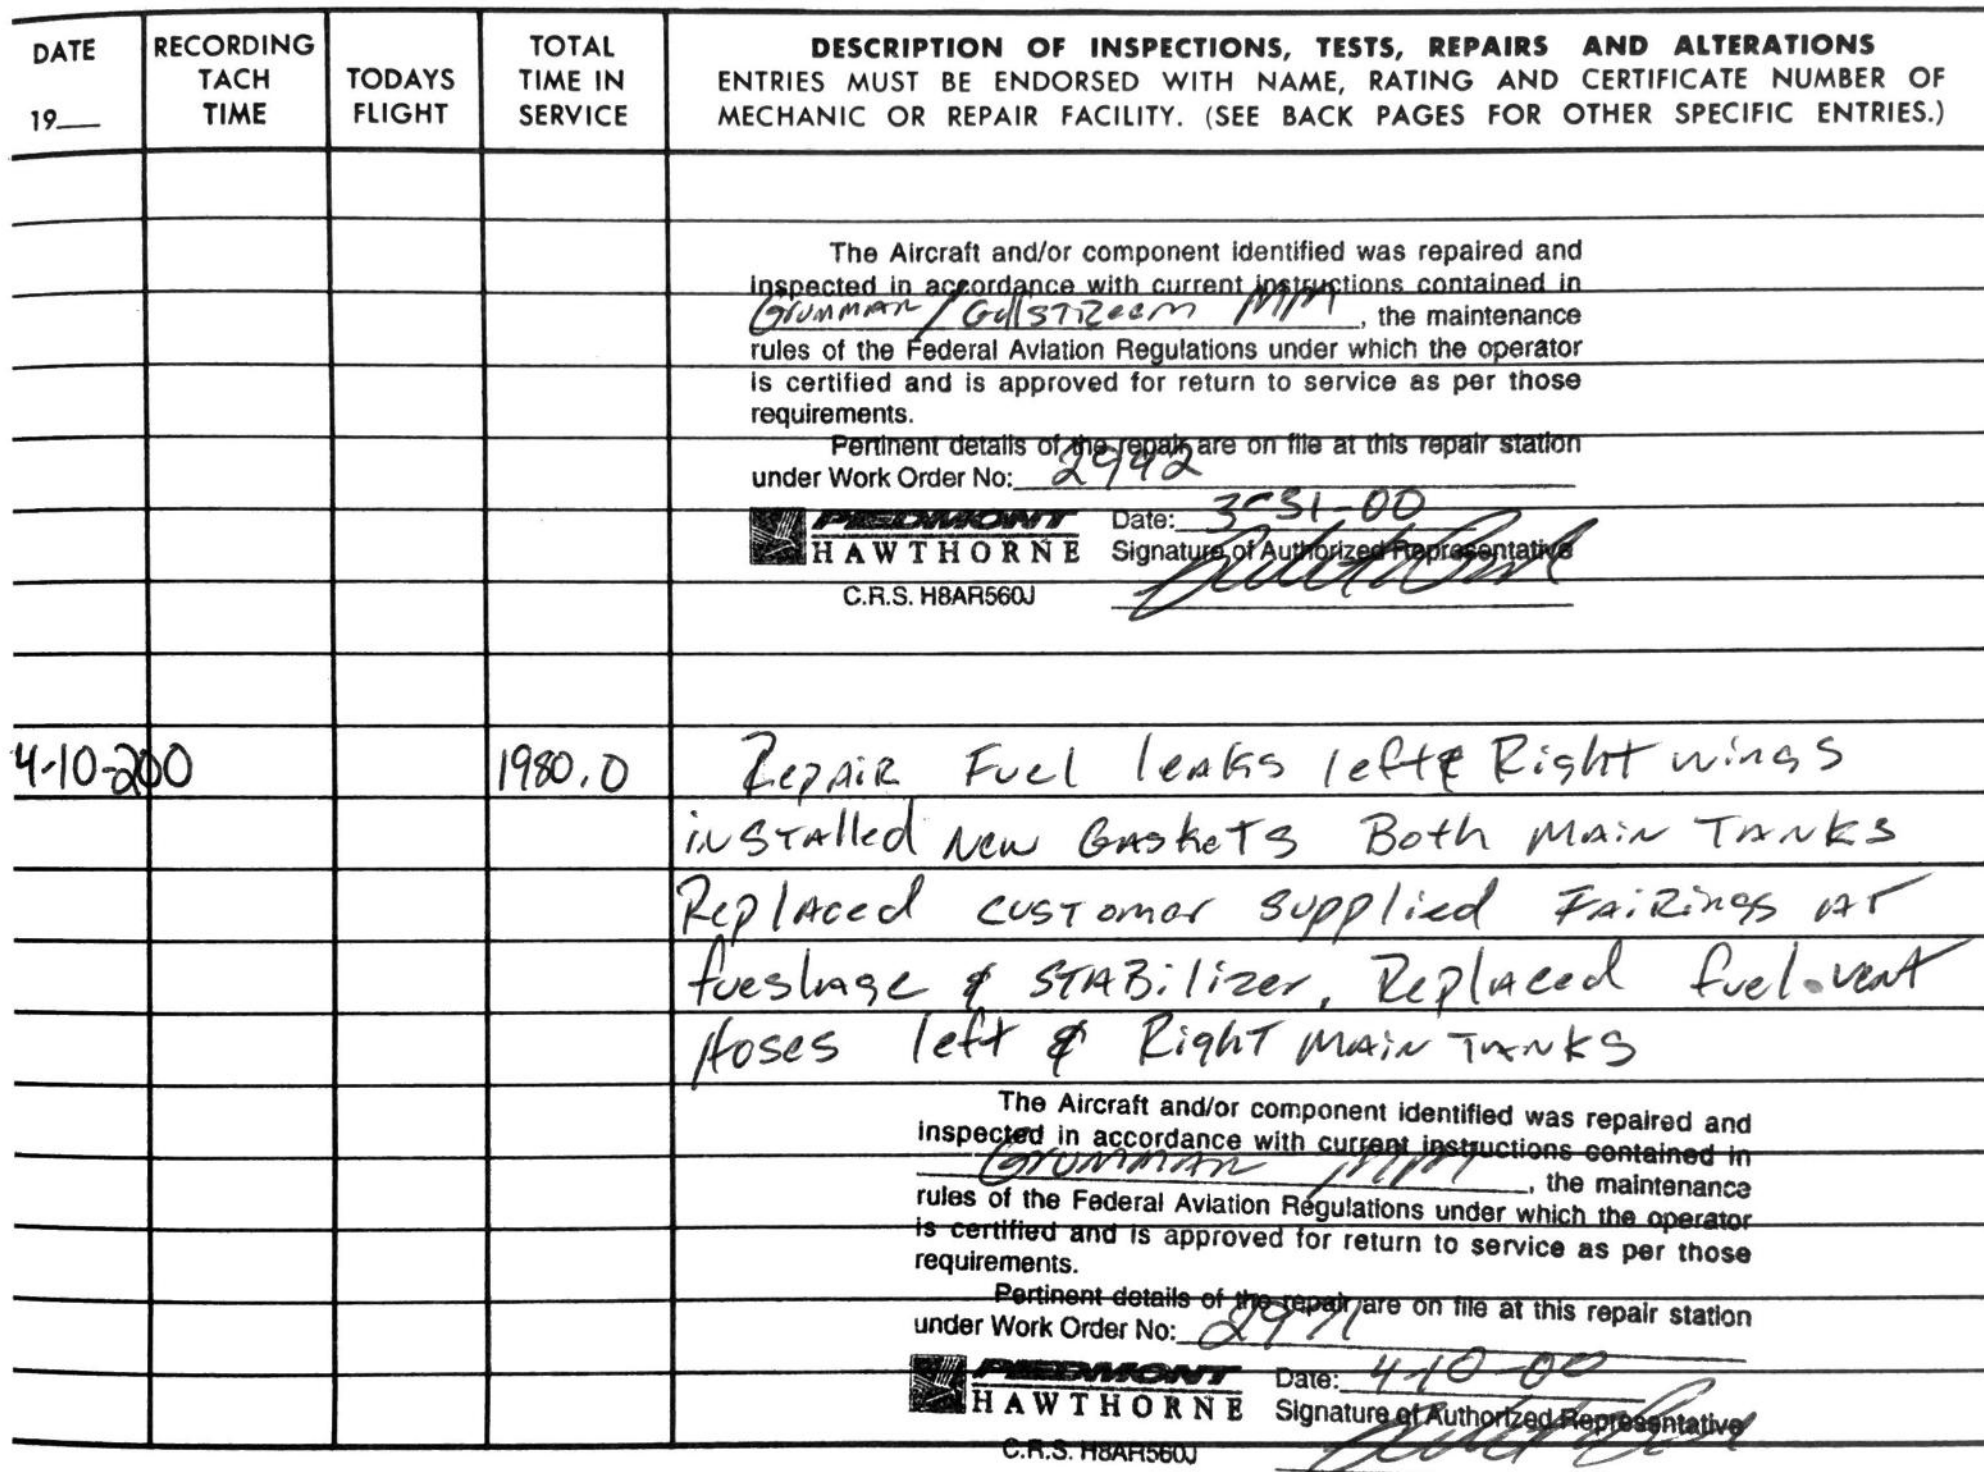 DATE
19__
RECORDING
TACH
TIME
TODAYS
FLIGHT
TOTAL
TIME IN
SERVICE
DESCRIPTION OF INSPECTIONS, TESTS, REPAIRS AND ALTERATIONS
ENTRIES MUST BE ENDORSED WITH NAME, RATING AND CERTIFICATE NUMBER OF
MECHANIC OR REPAIR FACILITY. (SEE BACK PAGES FOR OTHER SPECIFIC ENTRIES.)
The Aircraft and/or component identified was repaired and
inspected in accordance with current instructions contained in
Grumman / Gulstream MM, the maintenance
rules of the Federal Aviation Regulations under which the operator
is certified and is approved for return to service as per those
requirements.
Pertinent details of the repair are on file at this repair station
under Work Order No: 2992
PIEDMONT
HAWTHORNE
C.R.S. H8AR560J
Date: 3-31-00
Signature of Authorized Representative
4-10-200 1980.0 Repair Fuel leaks left & Right wings
installed New Gaskets Both Main Tanks
Replaced customer supplied Fairings at
fueslage & STABilizer, Replaced fuel vent
Hoses left & Right Main Tanks
The Aircraft and/or component identified was repaired and
inspected in accordance with current instructions contained in
Grumman MM, the maintenance
rules of the Federal Aviation Regulations under which the operator
is certified and is approved for return to service as per those
requirements.
Pertinent details of the repair are on file at this repair station
under Work Order No: 2971
PIEDMONT
HAWTHORNE
C.R.S. H8AR560J
Date: 4-10-00
Signature of Authorized Representative